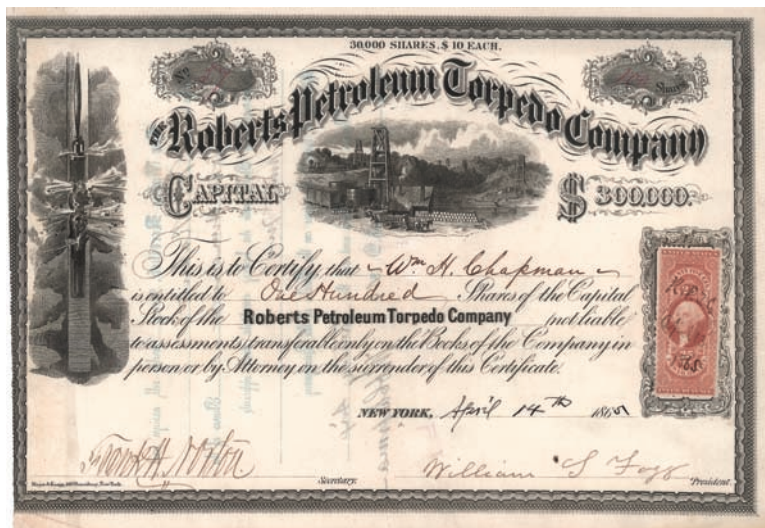 30,000 SHARES, $10 EACH.
No
100 Shares
THE Roberts Petroleum Torpedo Company
CAPITAL $300,000.
This is to Certify, that Wm. H. Chapman
is entitled to One Hundred Shares of the Capital
Stock of the Roberts Petroleum Torpedo Company (not liable
to assessments) transferable only on the Books of the Company in
person or by Attorney on the surrender of this Certificate.
NEW YORK, April 14th 1865
Secretary.
William S Fogg
President.